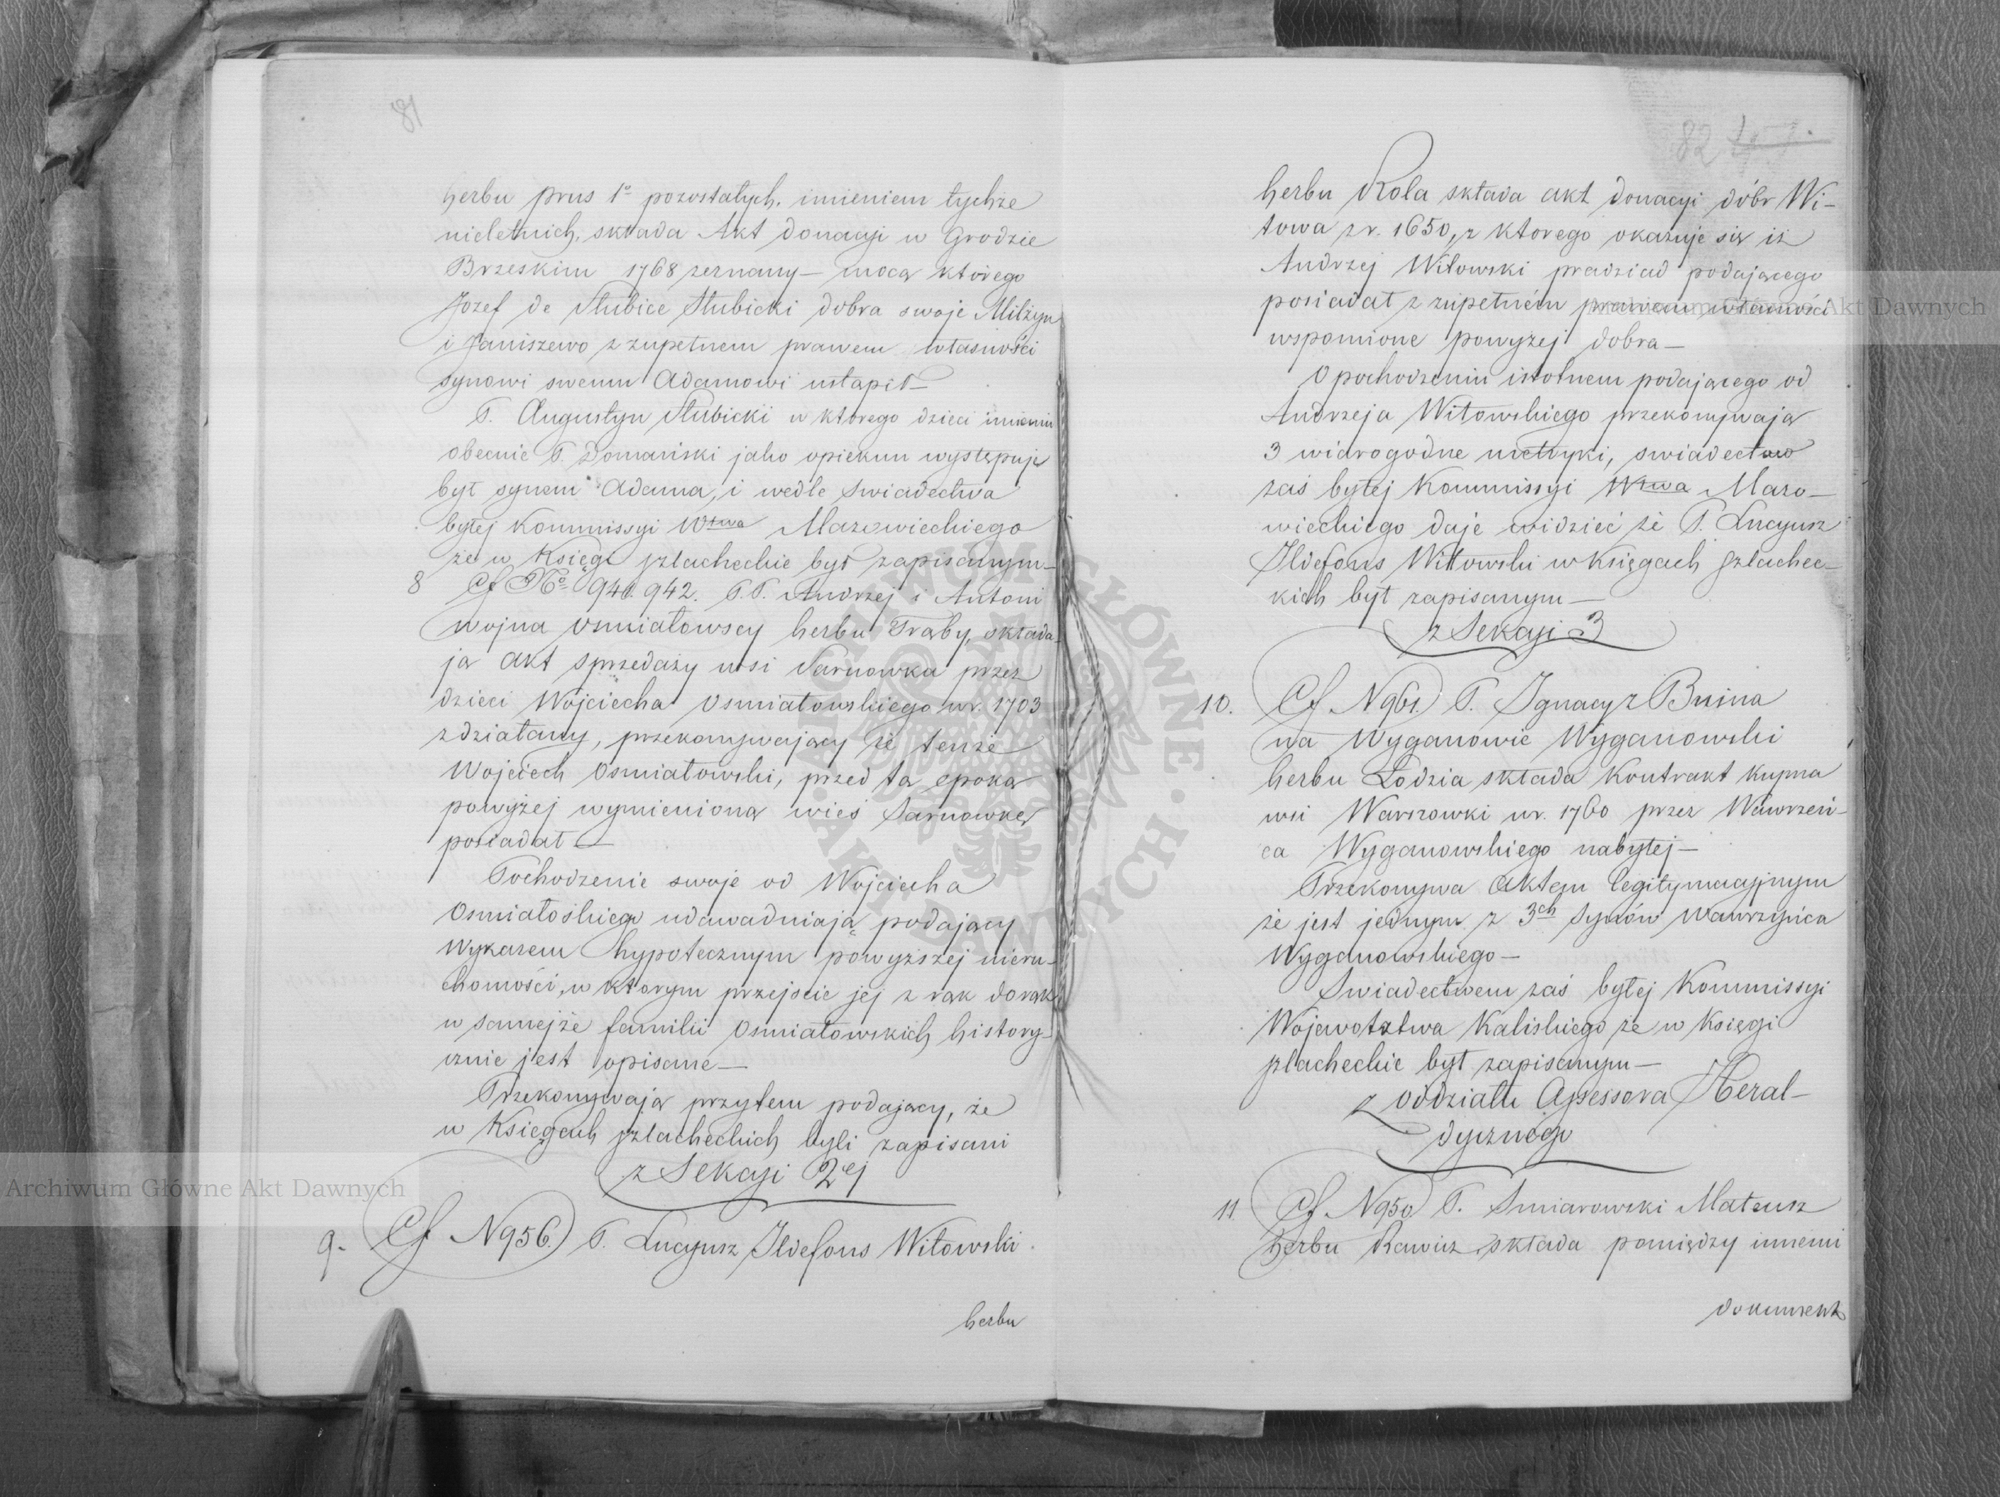 81
herbu prus 1º pozostałych, imieniem tychże
nieletnich, składa Akt donacyi w Grodzie
Brzeskim 1768 zeznany — mocą którego
Jozef de Słubice Słubicki dobra swoje Milżyn
i Janiszewo z zupełnem prawem własności
synowi swemu Adamowi ustąpił —
P. Augustyn Słubicki w którego dzieci imieniu
obecnie P. Domański jako opiekun występuje
był synem Adama, i wedle swiadectwa
byłej Kommissyi Wtwa Mazowieckiego
że w Księgi szlacheckie był zapisanym —
8 Cf Nº 941. 942. P.P. Andrzej i Antoni
Wojna Osmiałowscy herbu Trąby, składa-
ją akt sprzedaży wsi Sarnowka przez
dzieci Wojciecha Osmiałowskiego w r. 1703
zdziałany, przekonywający że tenże
Wojciech Osmiałowski, przed tą epoką
powyżej wymienioną wieś Sarnowkę
posiadał —
Pochodzenie swoje od Wojciecha
Osmiałoskiego udowadniają podający
Wykazem hypotecznym powyższej nieru-
chomości, w ktorym przejscie jej z rąk do rąk
w samejże familii Osmiałowskich history-
cznie jest opisane —
Przekonywają przytem podający, że
w Księgach szlacheckich byli zapisani
z Sekcyi 2ej
9. Cf N 956.) P. Lucyusz Ildefons Witowski
herbu
82
herbu Rola składa akt donacyi dóbr Wi-
towa z r. 1650, z ktorego okazuje się iż
Andrzej Witowski pradziad podającego
posiadał z zupełném prawem własności
wspomione powyżej dobra —
O pochodzeniu istotnem podającego od
Andrzeja Witowskiego przekonywają
3 wiarogodne metryki, swiadectwo
zaś byłej Kommissyi Wtwa Mazo-
wieckiego daje widzieć że P. Lucyusz
Ildefons Witowski w Księgach szlachec-
kich był zapisanym —
z Sekcyi 3
10. Cf N 961.) P. Ignacy z Bnina
na Wyganowie Wyganowski
herbu Łodzia składa Kontrakt Kupna
wsi Warszowki w r. 1760 przez Wawrzeń-
ca Wyganowskiego nabytej —
Przekonywa Aktem legitymacyjnym
że jest jednym z 3ch synów Wawrzyńca
Wyganowskiego —
Swiadectwem zaś byłej Kommissyi
Wojewodztwa Kaliskiego że w Księgi
szlacheckie był zapisanym —
z oddziału Assessora Heral-
dycznego
11 Cf N 950) P. Smiarowski Mateusz
herbu Rawicz składa pomiędzy innemi
dokument
Archiwum Główne Akt Dawnych
Archiwum Główne Akt Dawnych
ARCHIWUM GŁÓWNE · AKT DAWNYCH ·